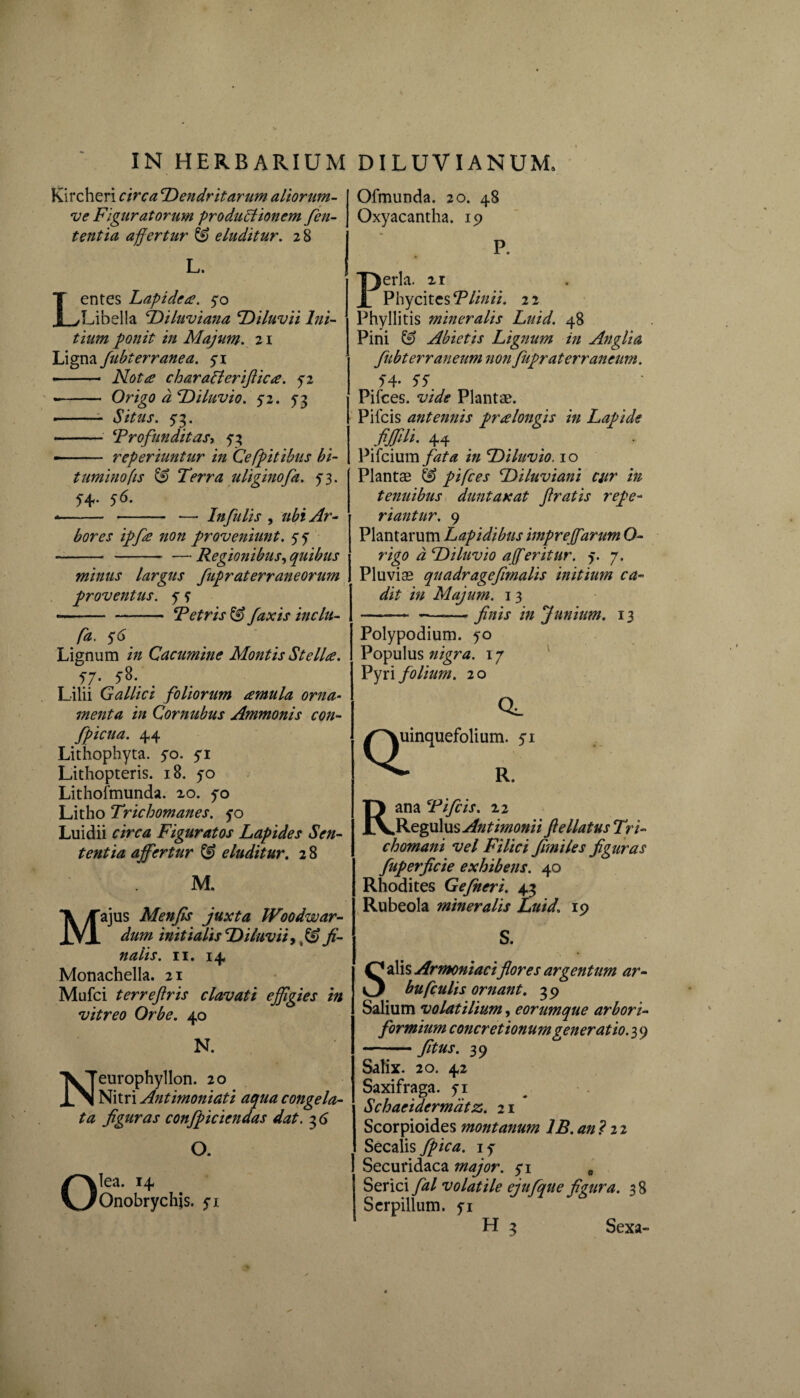 IN HERBARIUM DILUVIANUM.
Kircheri circa Dendritarum aliorum-
ve Figuratorum productionem sen-
tentia affertur & eluditur. 28
L.
Lentes Lapideæ. 50
Libella Diluviana Diluvii Ini-
tium ponit in Majum. 21
Ligna subterranea. 51
—— Notæ characteristicæ. 52
—— Origo à Diluvio. 52. 53
—— Situs. 53.
—— Profunditas, 53
—— reperiuntur in Cespitibus bi-
tuminosis & Terra uliginosa. 53.
54. 56.
—— —— — Insulis, ubi Ar-
bores ipsæ non proveniunt. 55
—— —— — Regionibus, quibus
minus largus supraterraneorum
proventus. 55
—— —— Petris & saxis inclu-
sa. 56
Lignum in Cacumine Montis Stellæ.
57. 58.
Lilii Gallici foliorum æmula orna-
menta in Cornubus Ammonis con-
spicua. 44
Lithophyta. 50. 51
Lithopteris. 18. 50
Lithosmunda. 20. 50
Litho Trichomanes. 50
Luidii circa Figuratos Lapides Sen-
tentia affertur & eluditur. 28
M.
Majus Mensis juxta Woodwar-
dum initialis Diluvii, & fi-
nalis. 11. 14
Monachella. 21
Musci terrestris clavati effigies in
vitreo Orbe. 40
N.
Neurophyllon. 20
Nitri Antimoniati aqua congela-
ta figuras conspiciendas dat. 36
O.
Olea. 14
Onobrychis. 51
Osmunda. 20. 48
Oxyacantha. 19
P.
Perla. 21
Phycites Plinii. 22
Phyllitis mineralis Luid. 48
Pini & Abietis Lignum in Anglia
subterraneum non supraterraneum.
54. 55
Pisces. vide Plantæ.
Piscis antennis prælongis in Lapide
fissili. 44
Piscium fata in Diluvio. 10
Plantæ & pisces Diluviani cur in
tenuibus duntaxat stratis repe-
riantur. 9
Plantarum Lapidibus impressarum O-
rigo à Diluvio asseritur. 5. 7.
Pluviæ quadragesimalis initium ca-
dit in Majum. 13
—— —— finis in Junium. 13
Polypodium. 50
Populus nigra. 17
Pyri folium. 20
Q.
Quinquefolium. 51
R.
Rana Piscis. 22
Regulus Antimonii stellatus Tri-
chomani vel Filici similes figuras
superficie exhibens. 40
Rhodites Gesneri. 43
Rubeola mineralis Luid. 19
S.
Salis Armoniaci flores argentum ar-
busculis ornant. 39
Salium volatilium, eorumque arbori-
formium concretionum generatio. 39
—— situs. 39
Salix. 20. 42
Saxifraga. 51
Schaeidermätz. 21
Scorpioides montanum IB. an? 22
Secalis spica. 15
Securidaca major. 51
Serici sal volatile ejusque figura. 38
Serpillum. 51
H 3
Sexa-